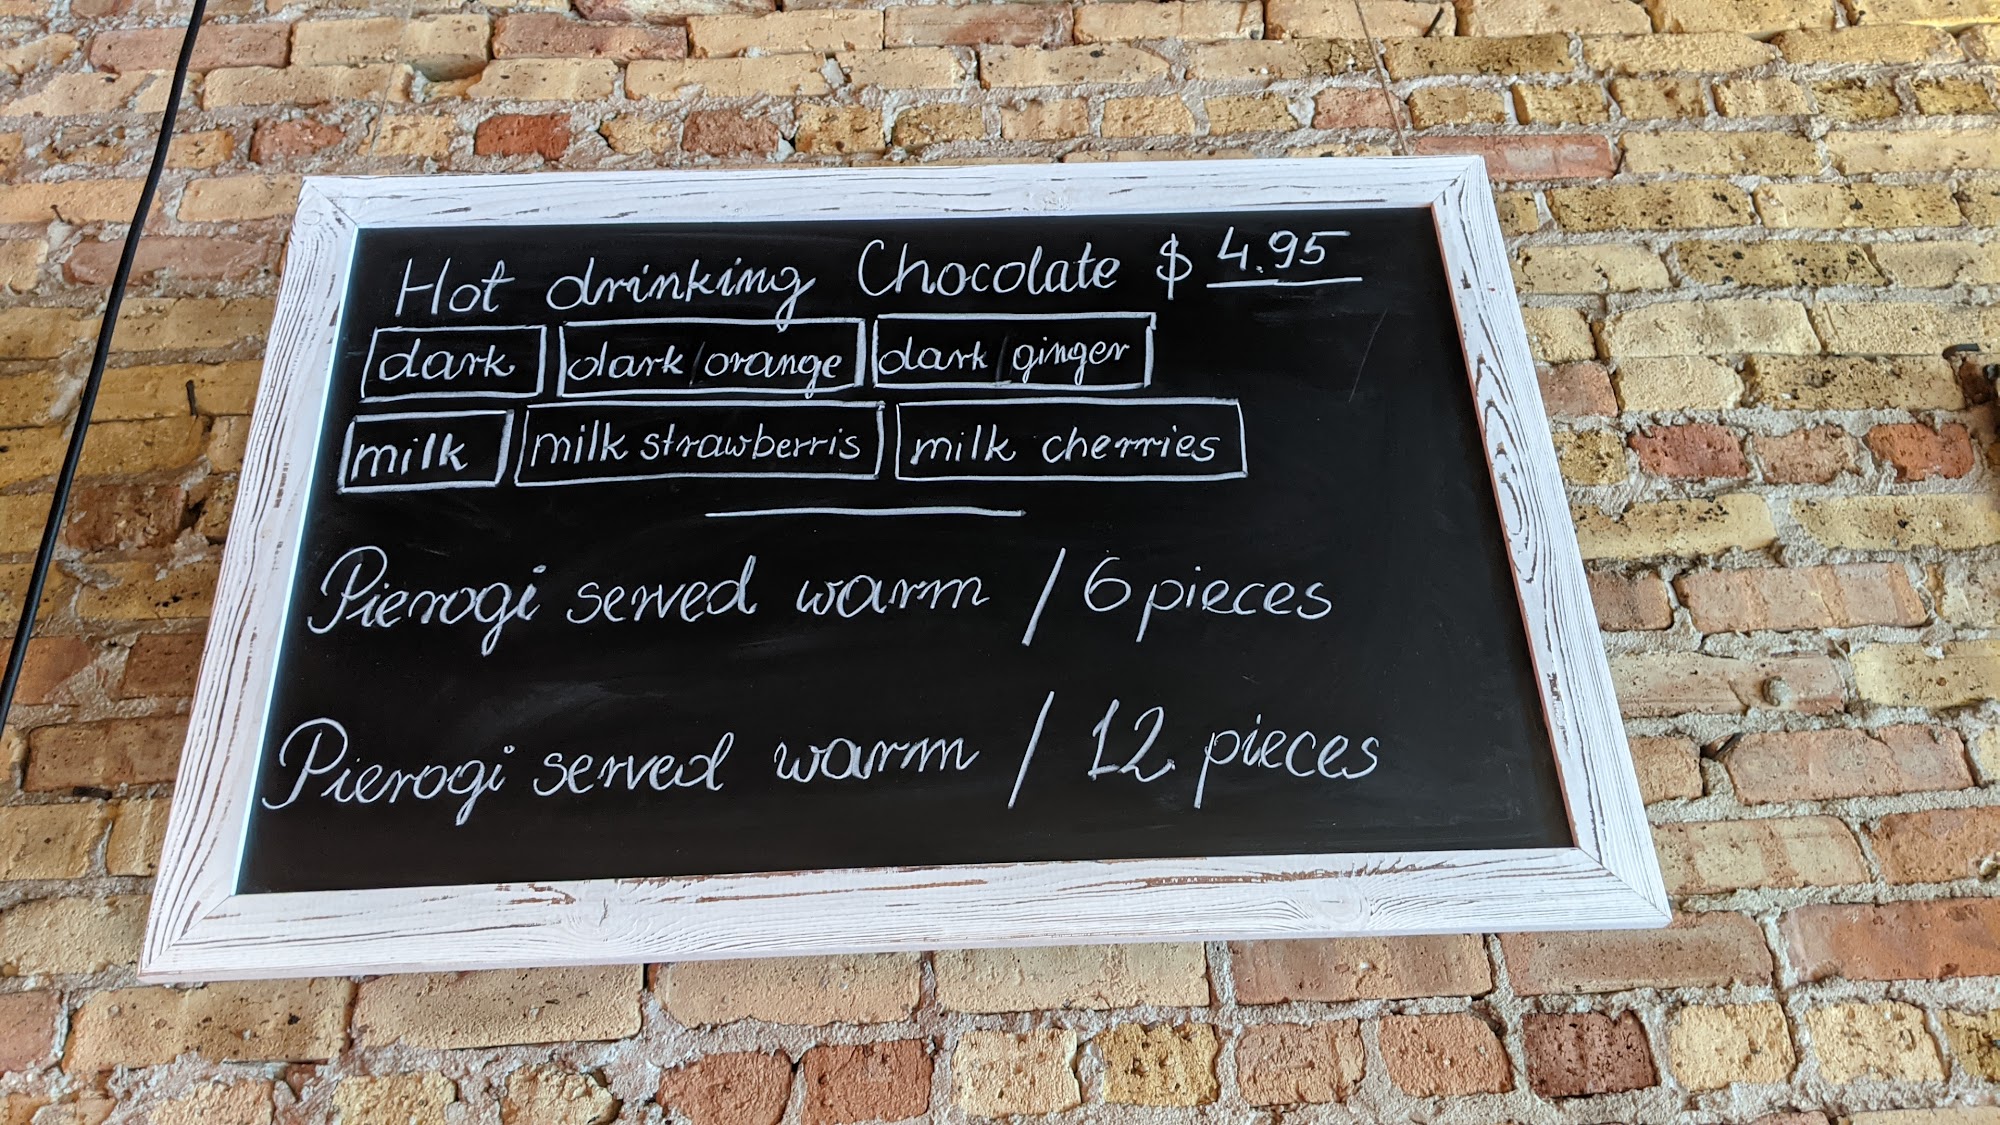 Hot drinking Chocolate $ 4.95
dark dark/orange dark/ginger
milk milk strawberris milk cherries
Pierogi served warm / 6 pieces
Pierogi served warm / 12 pieces